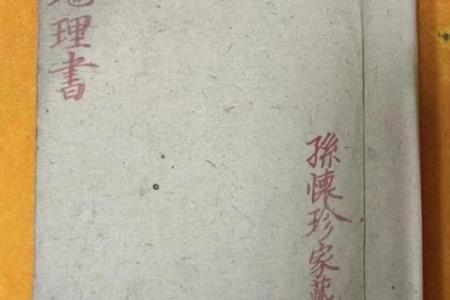 地理書
孫懷珍家藏